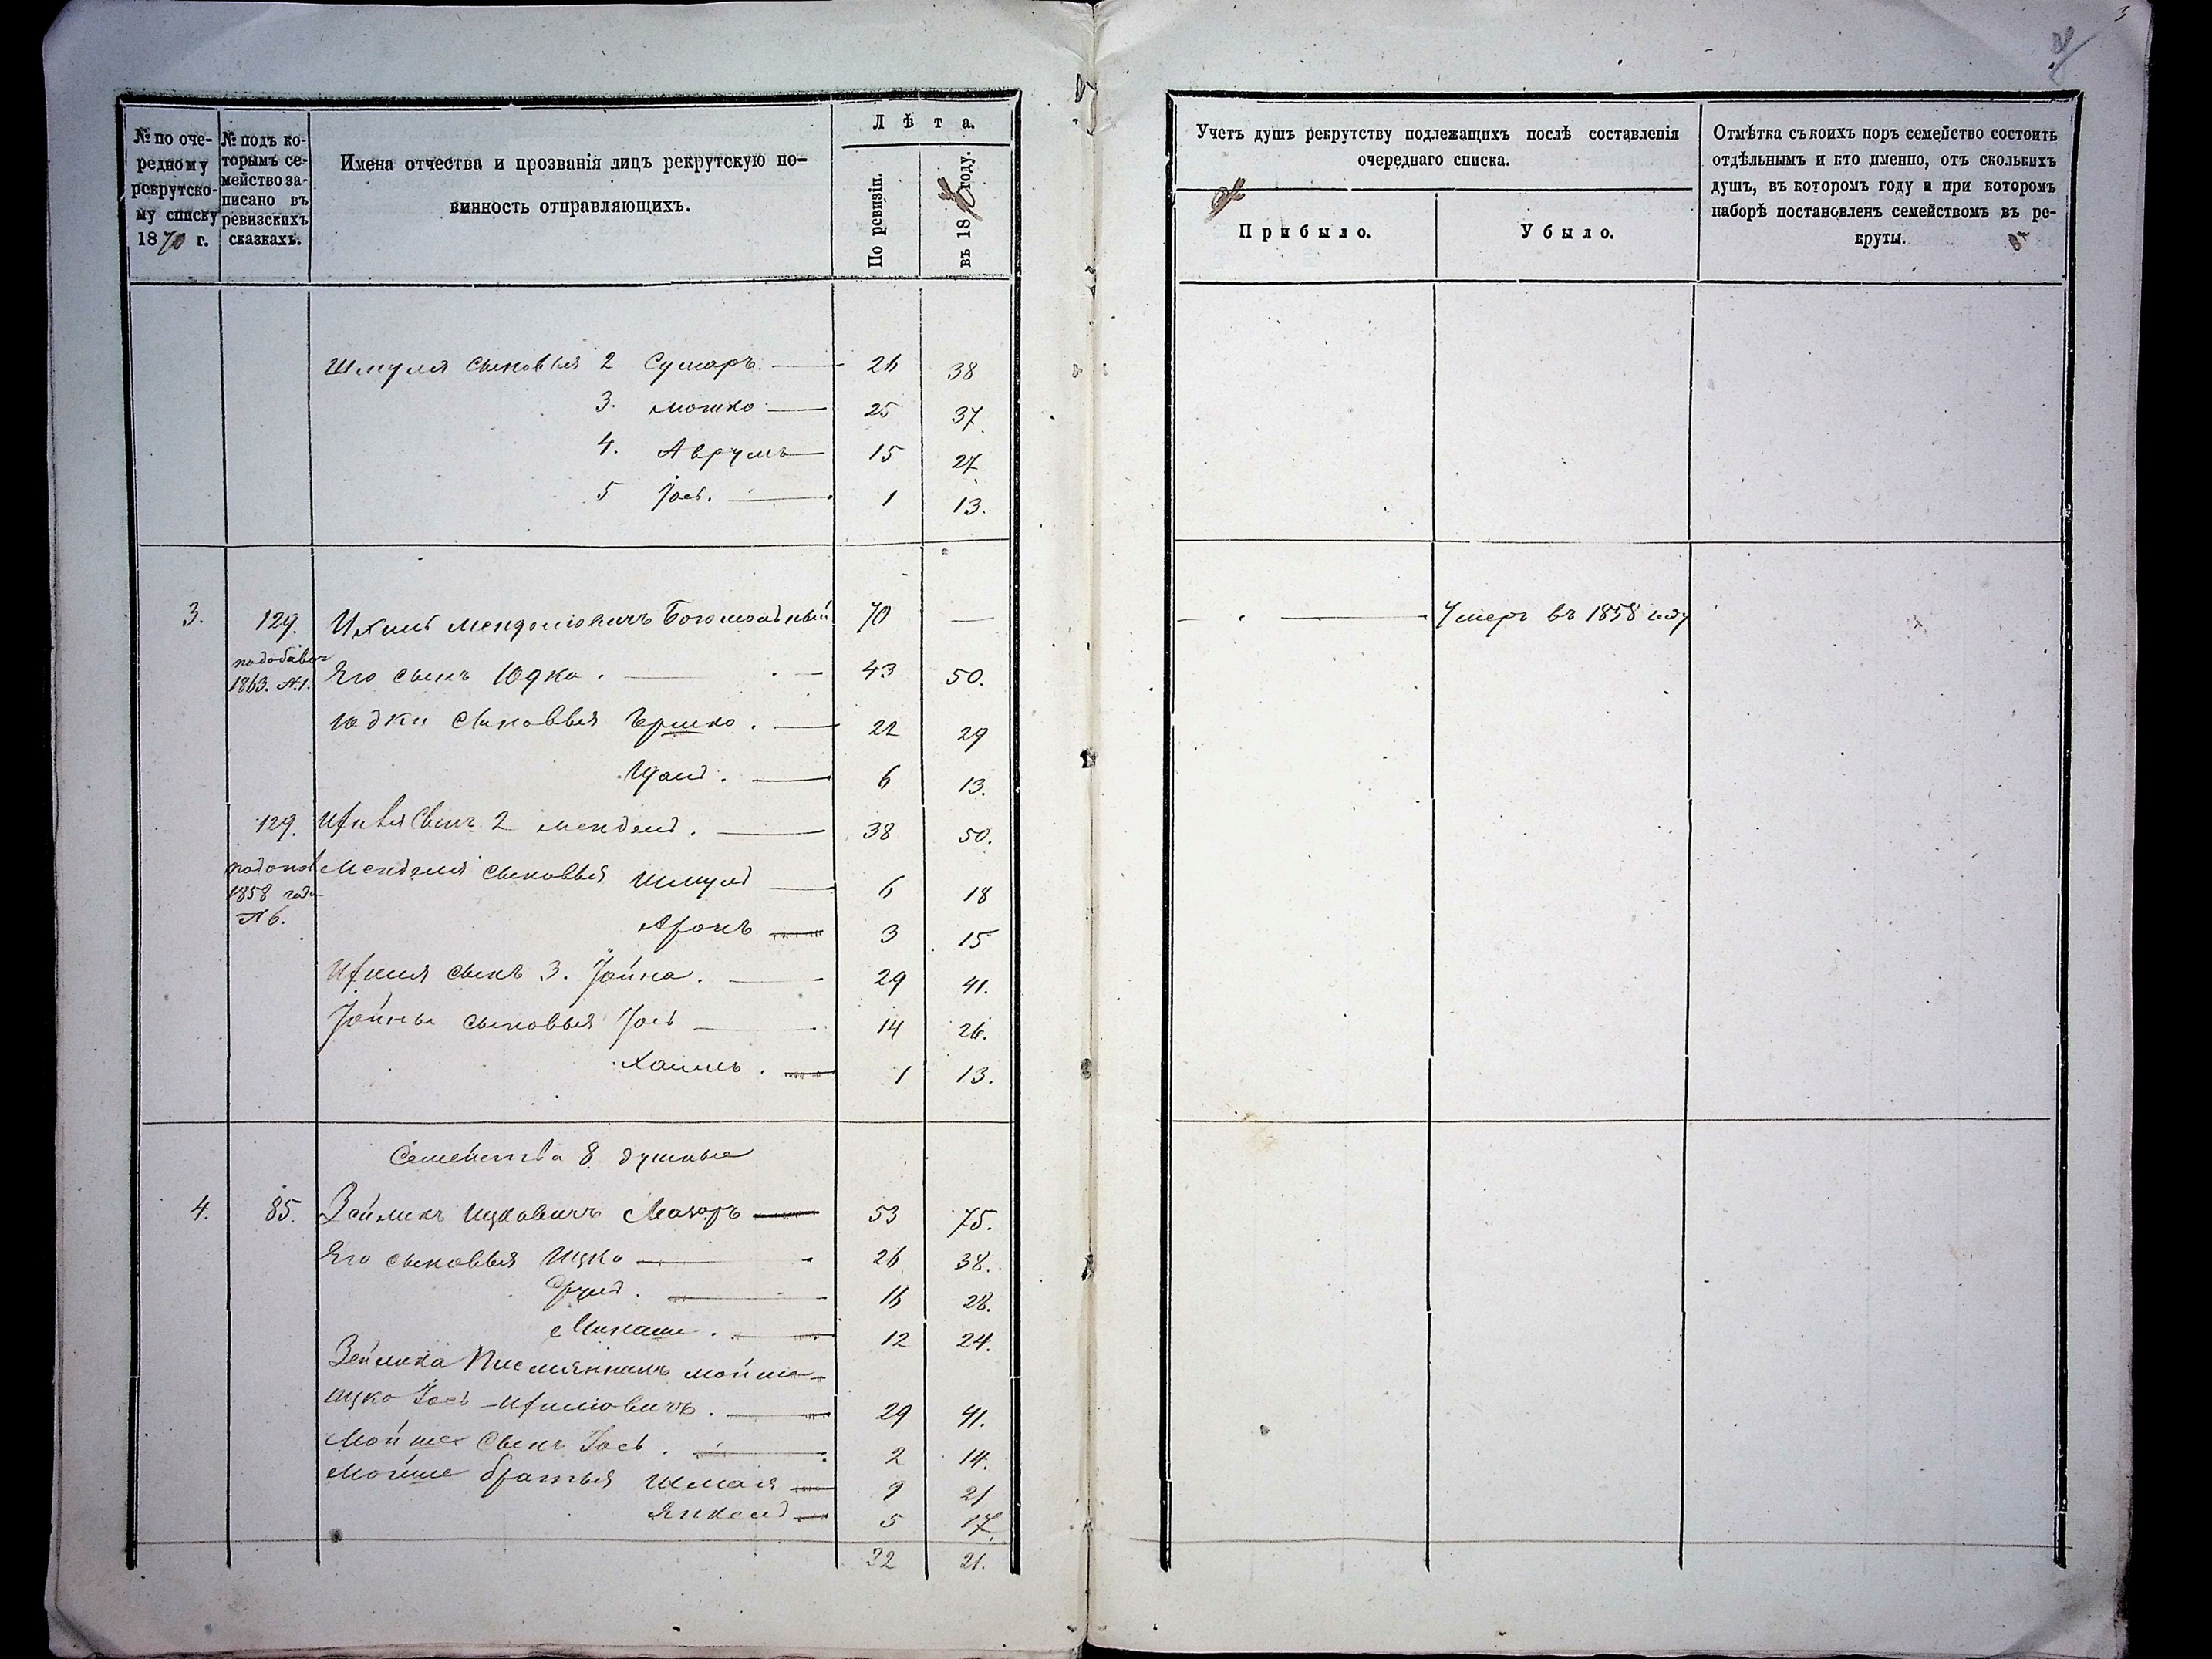 3
№ по оче-
редному
рекрутско-
му списку
1870 г.
№ подъ ко-
торымъ се-
мейство за-
писано въ
ревизскихъ
сказкахъ.
Имена отчества и прозванія лицъ рекрутскую по-
винность отправляющихъ.
Лѣта.
По ревизіи.
въ 1870 году.
Учетъ душъ рекрутству подлежащихъ послѣ составленія
очереднаго списка.
Прибыло.
Убыло.
Отмѣтка съ коихъ поръ семейство состоитъ
отдѣльнымъ и кто именно, отъ сколькихъ
душъ, въ которомъ году и при которомъ
наборѣ постановленъ семействомъ въ ре-
круты.
Шмуля сыновья 2 Сумаръ. — 26 38
3. Мошко — 25 37.
4. Аврумъ — 15 27
5 Іось. — 1 13.
3. 129. Ихиль Менделіовичъ Богомольный 70 — Умеръ въ 1858 году
1863. №1. Его сынъ Юдко. — 43 50.
Юдки сыновья Гершко. — 22 29
6 13.
129. сынъ 2 Мендель. — 38 50.
Менделя сыновья Шмуль — 6 18
1858 года
№ 6.
Аронъ — 3 15
Ихиля сынъ 3. Іойна. — 29 41.
Іойны сыновья Іось — 14 26.
Хаимъ. — 1 13.
Семейства 8 душные
4. 85. Зейликъ Ицковичъ Мазоръ — 53 75.
Его сыновья Ицко — 26 38.
Сруль. — 16 28.
Минаши. — 12 24.
Зейлика племянникъ Мойше-
Ицко Іось-Ихиліовичъ. — 29 41.
Мойше сынъ Іось. — 2 14.
Мойше братья Шмая — 9 21
Янкель — 5 17.
22 21.